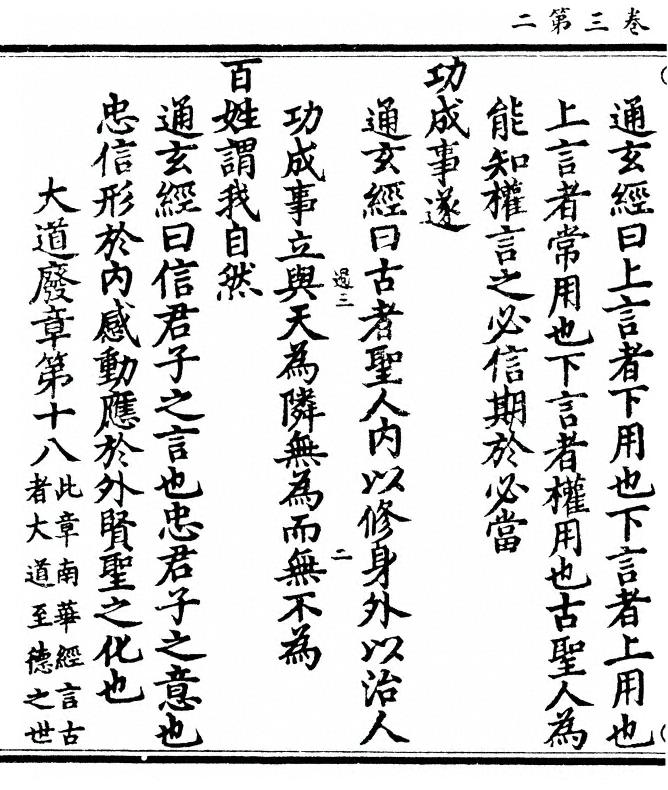 卷三第二
通玄經曰上言者下用也下言者上用也
上言者常用也下言者權用也古聖人為
能知權言之必信期於必當
功成事遂
通玄經曰古者聖人內以修身外以治人
過三
二
功成事立與天為隣無為而無不為
百姓謂我自然
通玄經曰信君子之言也忠君子之意也
忠信形於內感動應於外賢聖之化也
大道廢章第十八
此章南華經言古
者大道至德之世